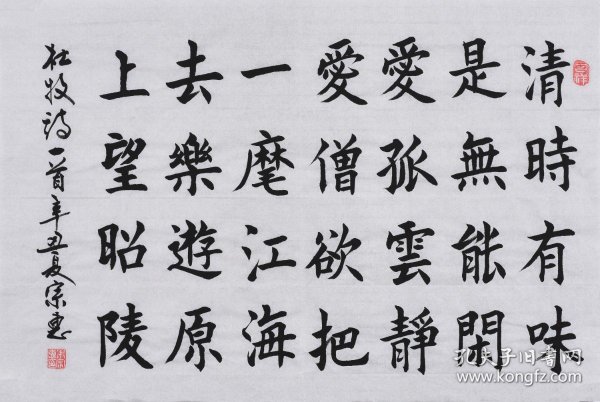 清時有味
是無能閑
愛孤雲靜
愛僧欲把
一麾江海
去樂遊原
上望昭陵
杜牧詩一首辛丑夏宗惠
孔夫子旧书网
www.kongfz.com